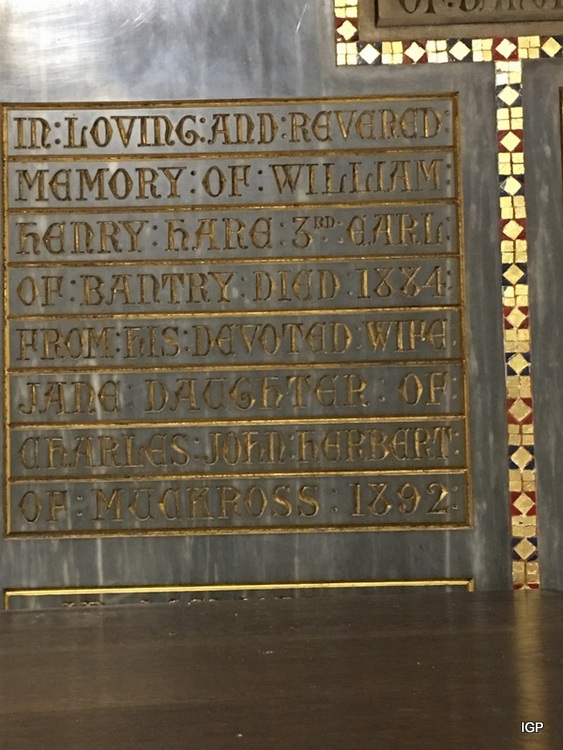 OF:BANTRY
IN:LOVING:AND:REVERED:
MEMORY:OF:WILLIAM:
HENRY:HARE:3RD:EARL:
OF:BANTRY:DIED:1884:
FROM:HIS:DEVOTED:WIFE
JANE:DAUGHTER:OF:
CHARLES:JOHN:HERBERT:
OF:MUCKROSS:1892:
IGP